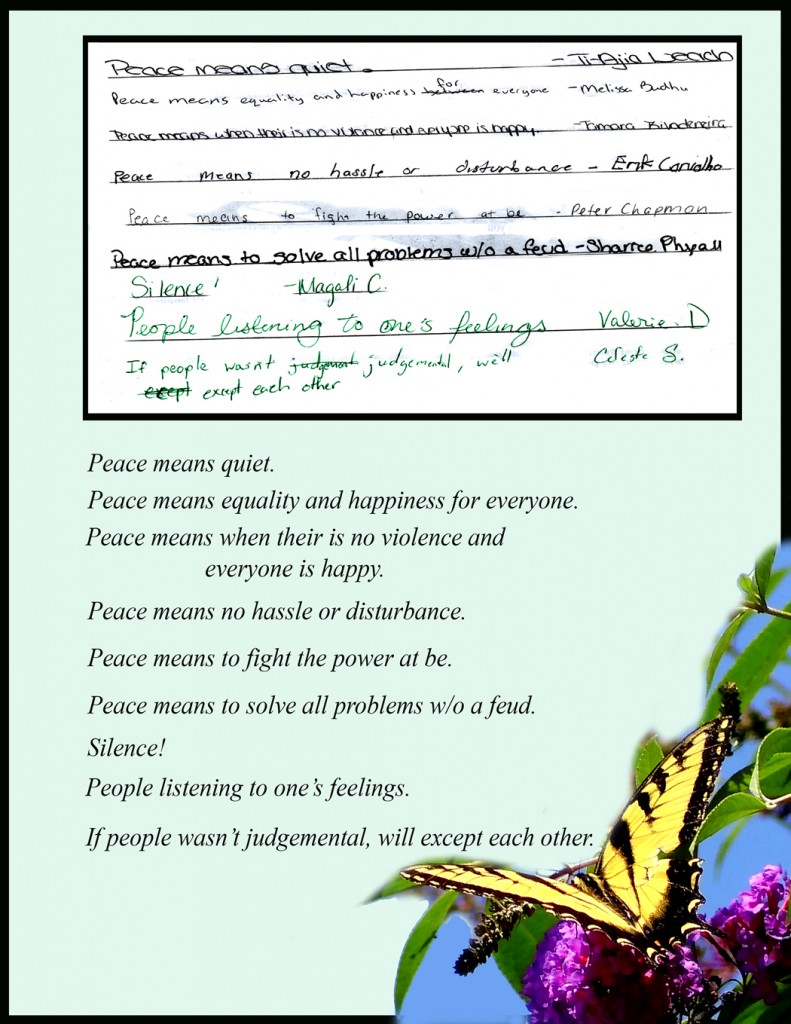 Peace means quiet. - Ti-Ajia Leach
for
Peace means equality and happiness between everyone - Melissa Budhu
Peace means when their is no violence and everyone is happy. - Tamara
Peace means no hassle or disturbance - Erik Carvalho
Peace means to fight the power at be - Peter Chapman
Peace means to solve all problems w/o a feud - Sharree Phyall
Silence! - Magali C.
People listening to one's feelings Valerie. D
If people wasn't judgemental, will Celeste S.
except except each other
Peace means quiet.
Peace means equality and happiness for everyone.
Peace means when their is no violence and
everyone is happy.
Peace means no hassle or disturbance.
Peace means to fight the power at be.
Peace means to solve all problems w/o a feud.
Silence!
People listening to one’s feelings.
If people wasn’t judgemental, will except each other.